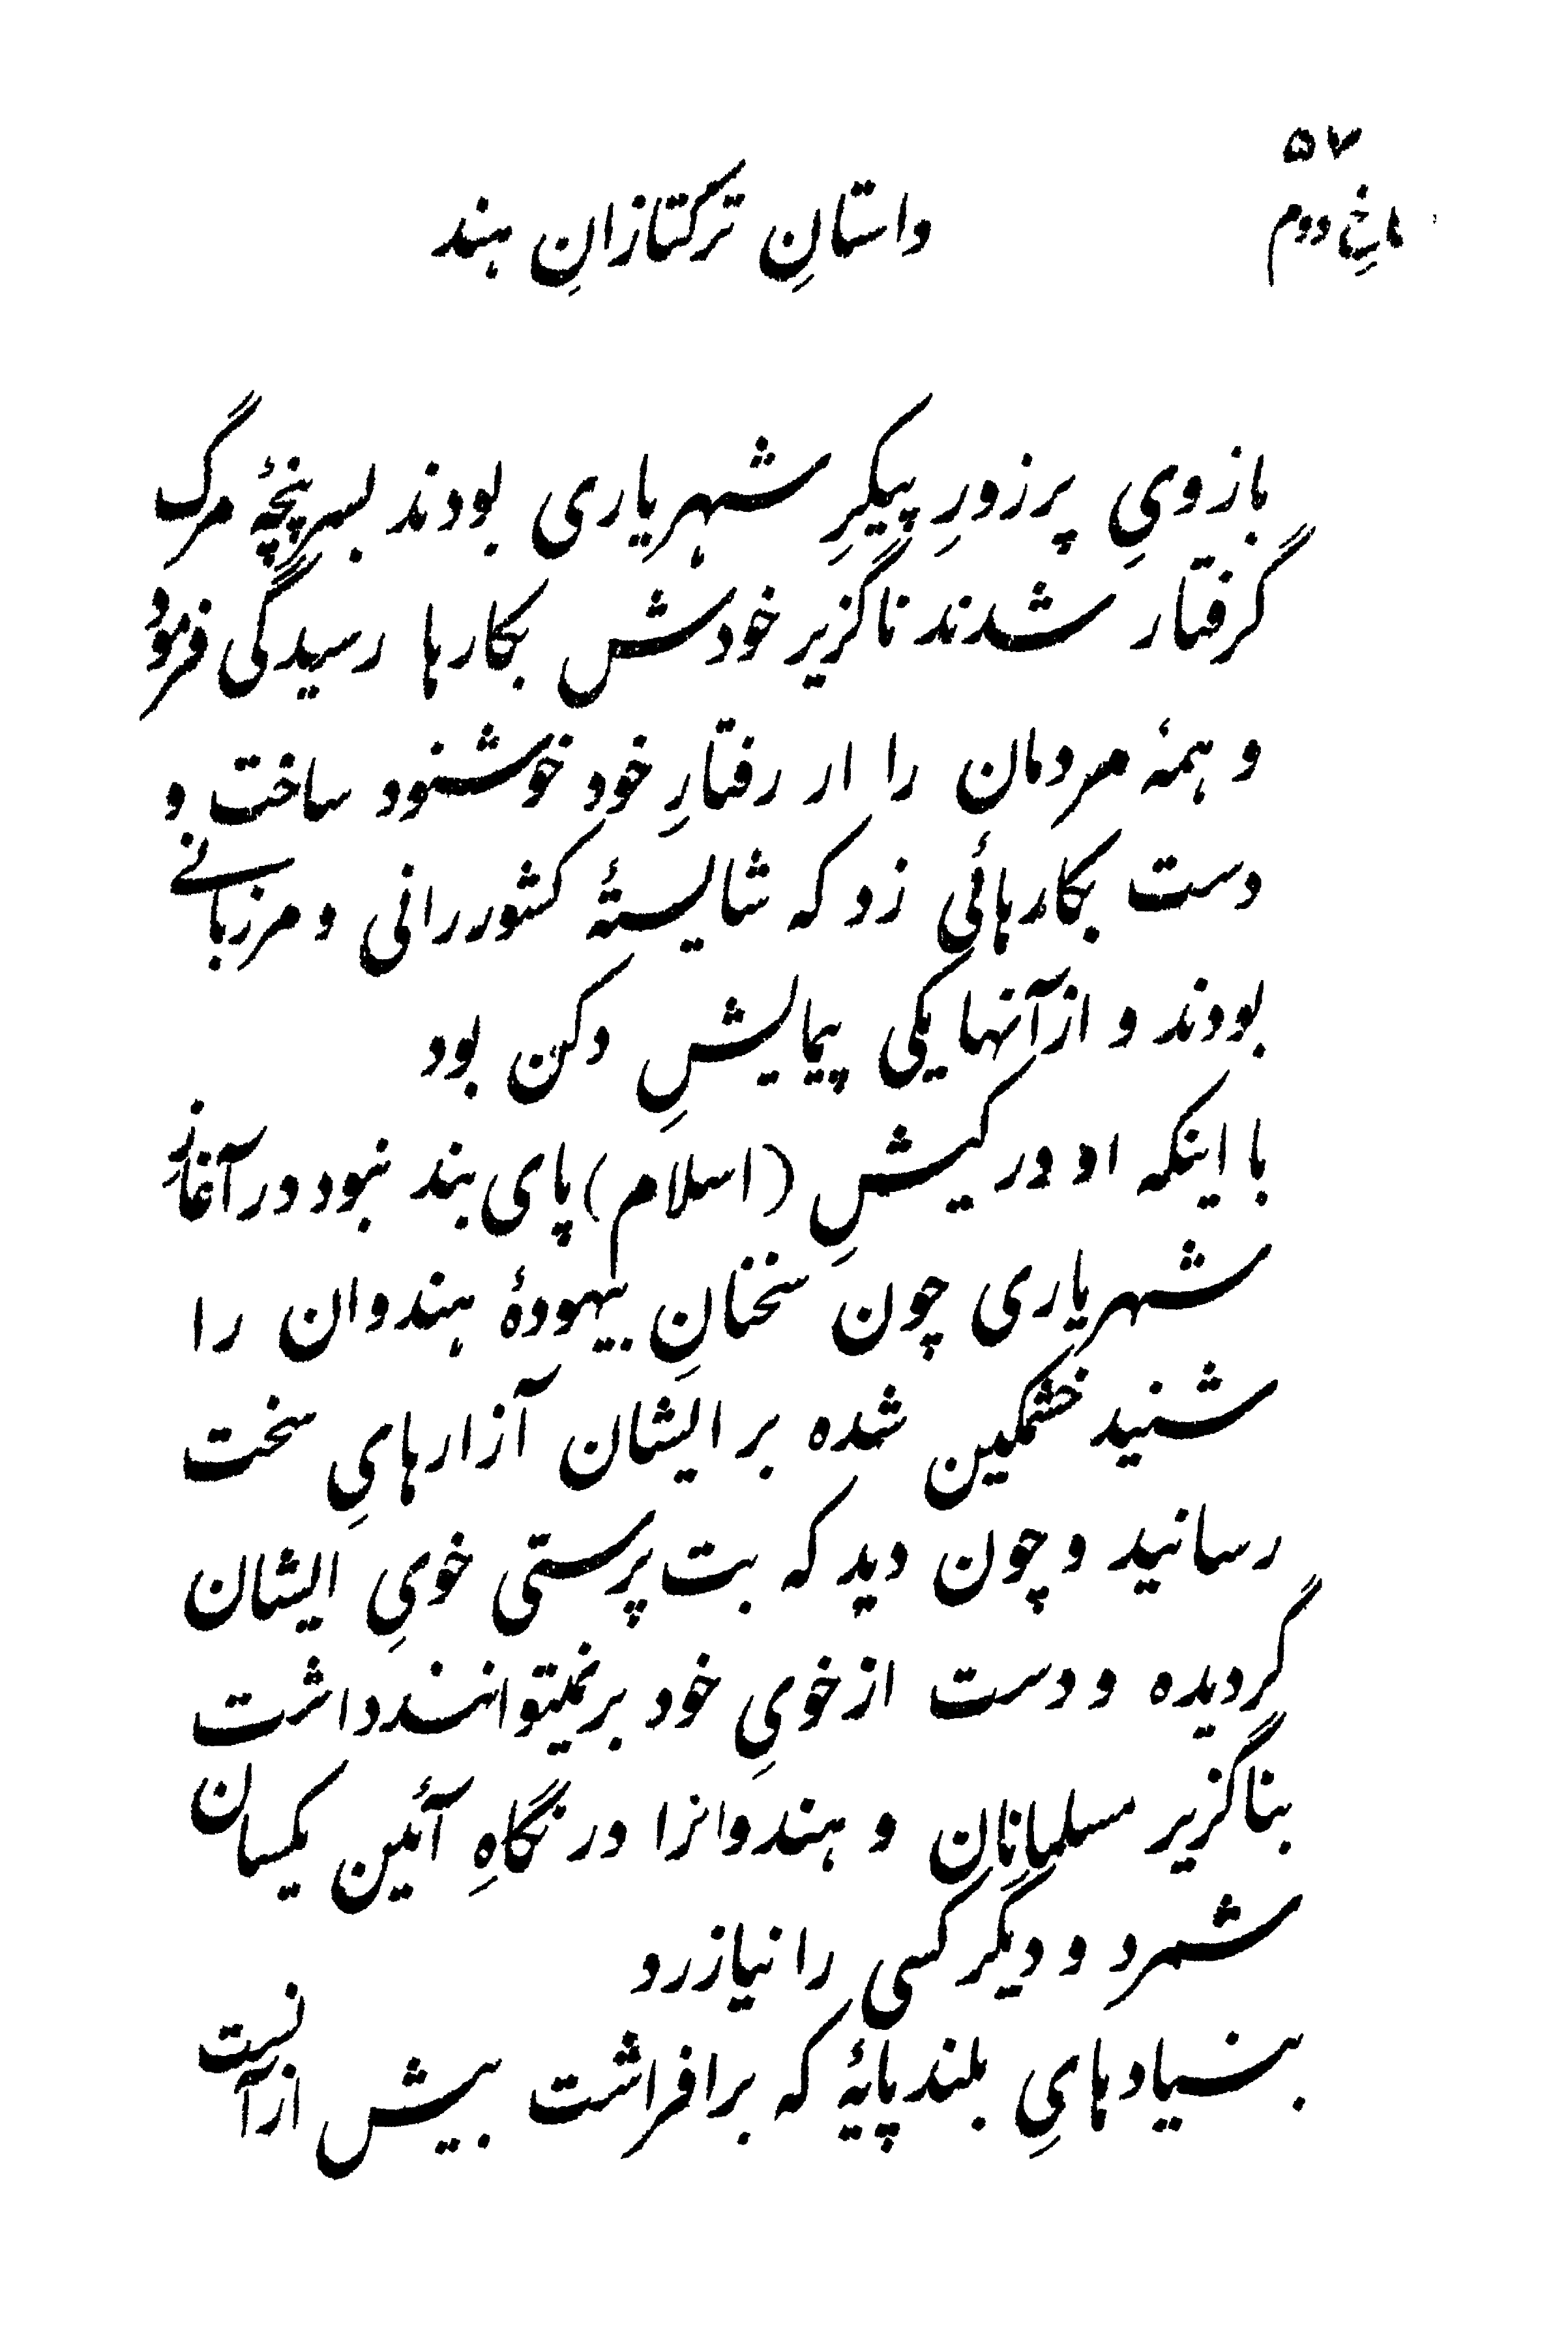 ۵۷
کاخ دوم
داستانِ ترکتازانِ هند
بازویِ پرزورِ پیکرِ شهریاری بودند بسرپنجهٔ مرگ
گرفتار شدند ناگزیر خودش بکارها رسیدگی فرمود
و همهٔ مردمان را از رفتارِ خود خوشنود ساخت و
دست بکارهائی زد که شایستهٔ کشوررانی و مرزبانے
بودند و ازآنها یکی پیمایشِ دکن بود
با اینکه او در کیشِ (اسلام) پای بند نبود در آغازِ
شهریاری چون سخنانِ بیهودهٔ هندوان را
شنید خشمگین شده بر ایشان آزارهایِ سخت
رسانید و چون دید که بت پرستی خویِ ایشان
گردیده و دست از خویِ خود برنمیتوانند داشت
بناگزیر مسلمانان و هندوانرا در نگاهِ آئین یکسان
شمرد و دیگر کسی را نیازرد
بنیادهایِ بلند پایهٔ که برافراشت بیش ازآنست